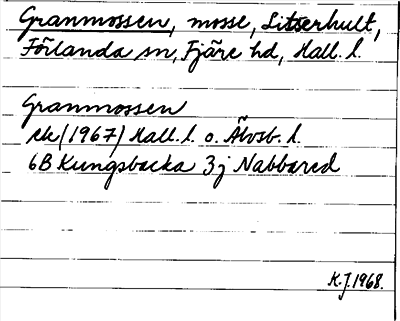 Granmossen, mosse, Litserhult,
Förlanda sn, Fjäre hd, Hall. l.
Granmossen
ek (1967) Hall. l. o. Älvsb. l.
6B Kungsbacka 3j Nabbared
K.J. 1968.